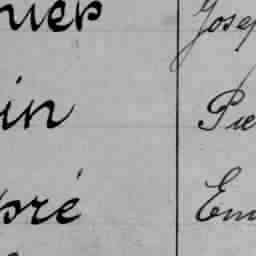 uer Josep
in Pie
pré Em